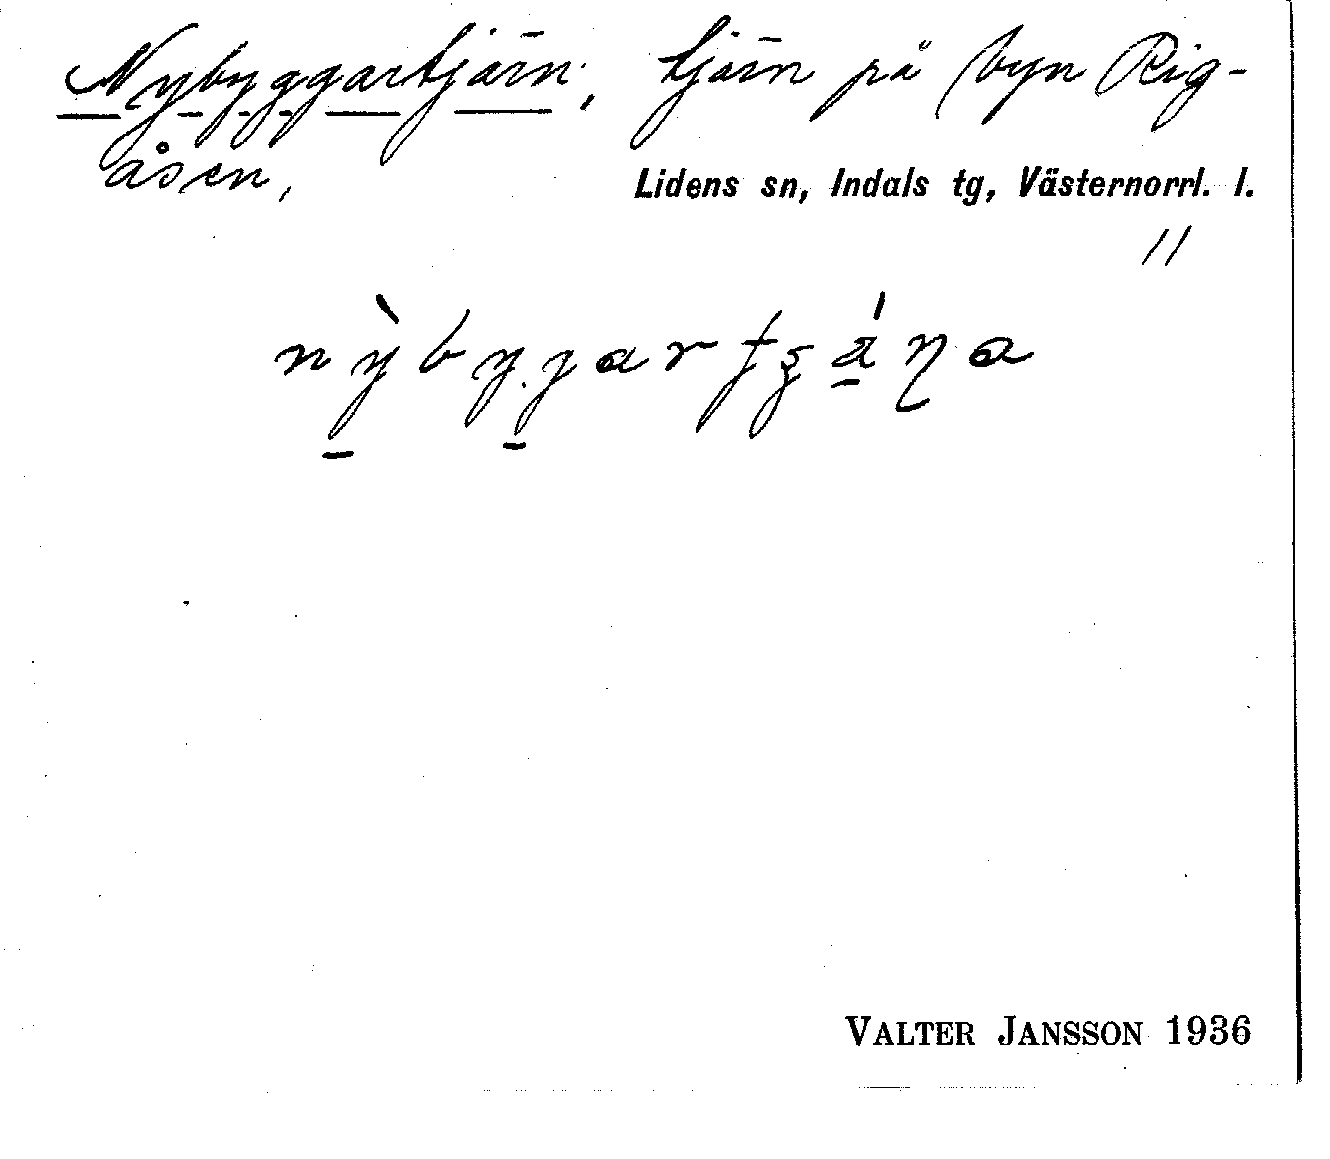 Nybyggartjärn, tjärn på byn Rig-
åsen,
Lidens sn, Indals tg, Västernorrl. l.
11
VALTER JANSSON 1936